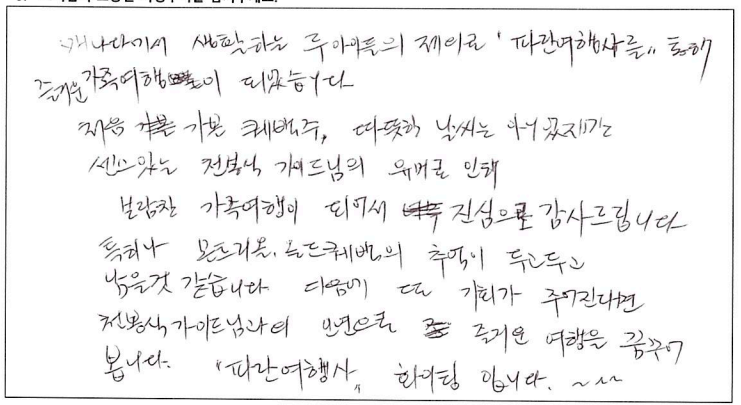 캐나다에서 생활하는 두 아이들의 제의로 "파란여행사를" 통해
즐거운 가족여행이 되었습니다
처음 가본 퀘백주, 따뜻한 날씨는 아니였지만
센스있는 전봉식 가이드님의 유머로 인해
보람찬 가족여행이 되어서 진심으로 감사드립니다
특히나 몬트리올, 올드퀘백의 추억이 두고두고
남을것 같습니다 다음에 또 기회가 주어진다면
전봉식가이드님과의 인연으로 즐거운 여행을 꿈꾸어
봅니다. "파란여행사" 화이팅 입니다. ~~~